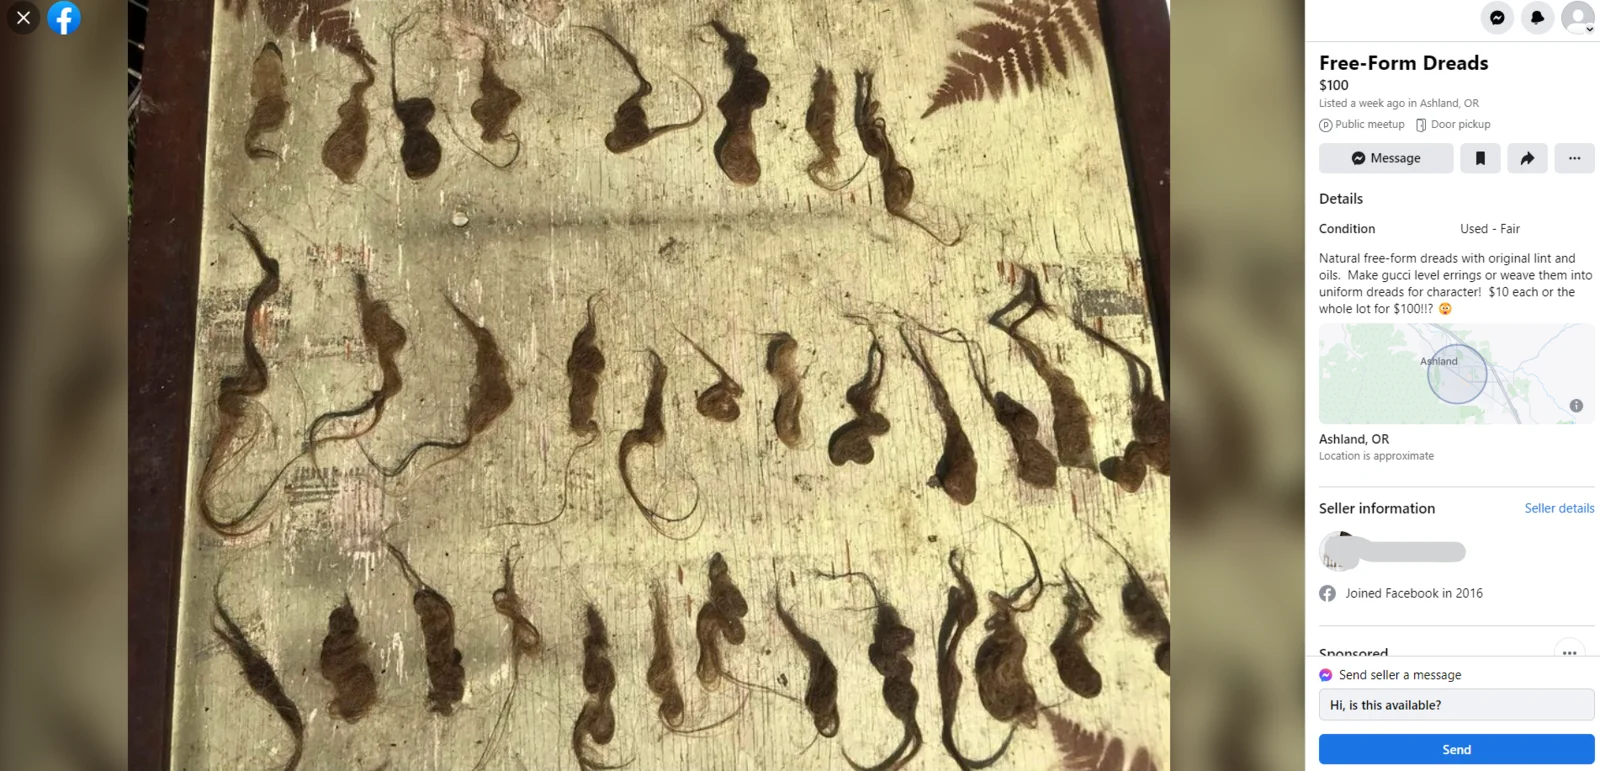 Free-Form Dreads
$100
Listed a week ago in Ashland, OR
Public meetup Door pickup
Message
Details
Condition Used - Fair
Natural free-form dreads with original lint and
oils. Make gucci level errings or weave them into
uniform dreads for character! $10 each or the
whole lot for $100!!? 😳
Ashland
Ashland, OR
Location is approximate
Seller information Seller details
Joined Facebook in 2016
Sponsored
Send seller a message
Hi, is this available?
Send